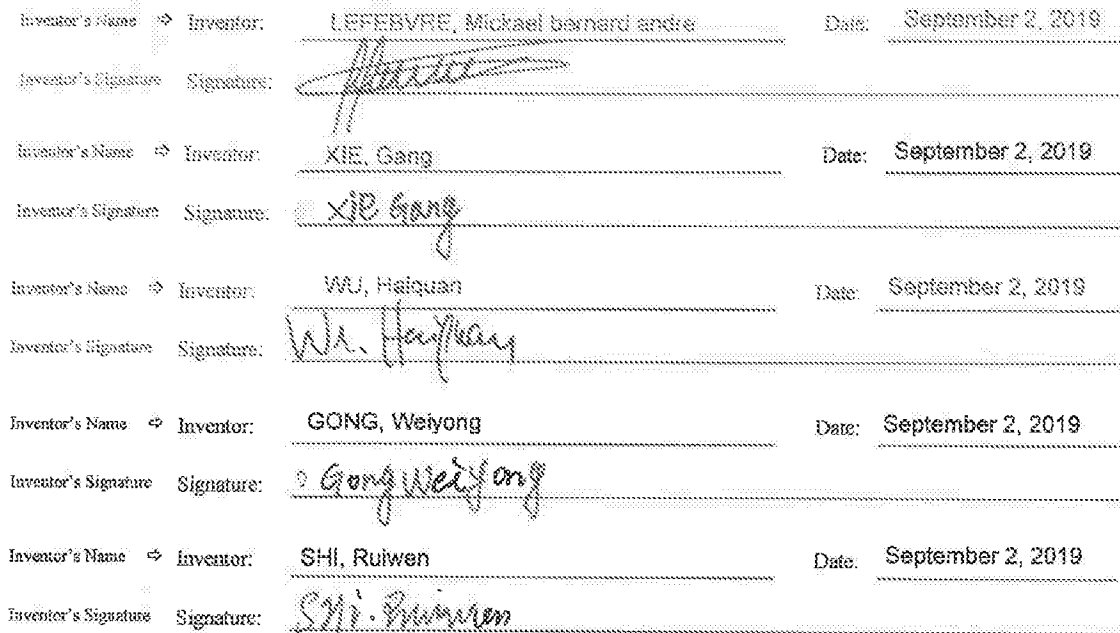 Inventor's Name ⇨ Inventor: LEFEBVRE, Mickael bernard andre Date: September 2, 2019
Inventor's Signature Signature:
Inventor's Name ⇨ Inventor: XIE, Gang Date: September 2, 2019
Inventor's Signature Signature: Xie Gang
Inventor's Name ⇨ Inventor: WU, Haiquan Date: September 2, 2019
Inventor's Signature Signature: Wu. Haiquan
Inventor's Name ⇨ Inventor: GONG, Weiyong Date: September 2, 2019
Inventor's Signature Signature: Gong WeiYong
Inventor's Name ⇨ Inventor: SHI, Ruiwen Date: September 2, 2019
Inventor's Signature Signature: SHi. Ruiwen